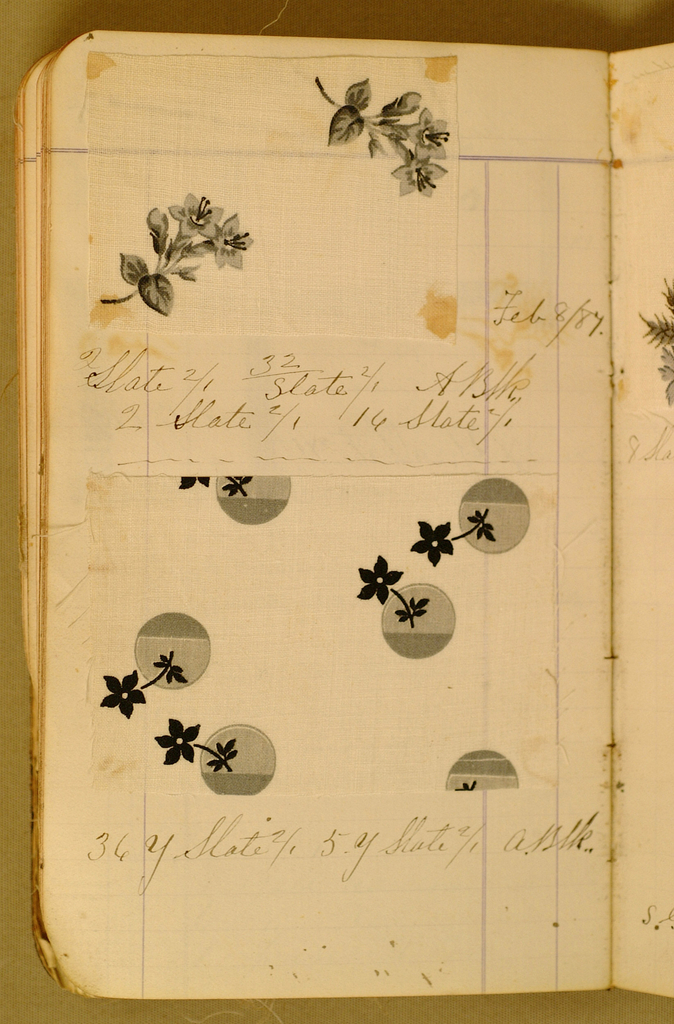 Feb 8/87.
2 Slate 2/1 32/Slate 2/1 A Blk.
2 Slate 2/1 16 Slate 2/1
36 Y Slate 2/1 5 Y Slate 2/1 A.Blk.
8 Sla
S.